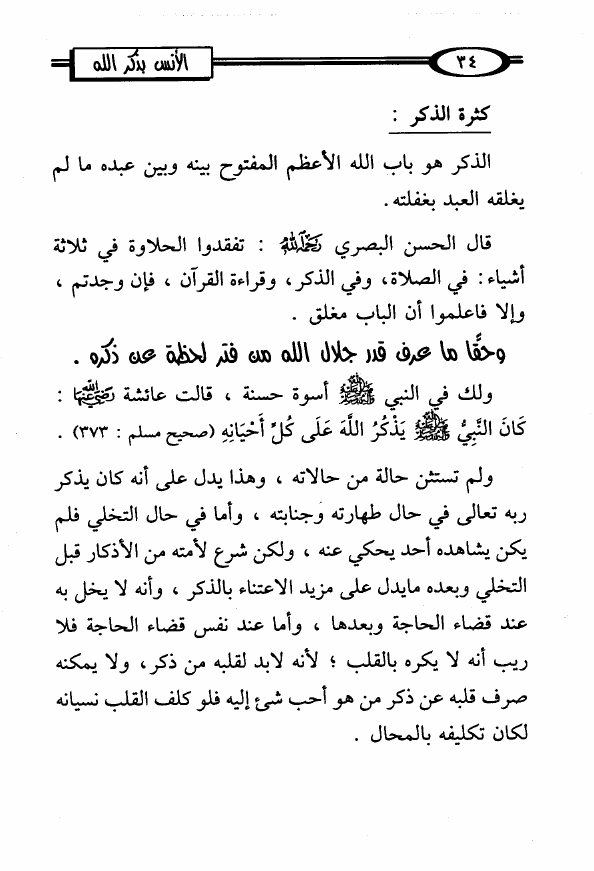 ٣٤
الأنس بذكر الله
كثرة الذكر :
الذكر هو باب الله الأعظم المفتوح بينه وبين عبده ما لم
يغلقه العبد بغفلته .
قال الحسن البصري رحمه الله : تفقدوا الحلاوة في ثلاثة
أشياء : في الصلاة ، وفي الذكر ، وقراءة القرآن ، فإن وجدتم ،
وإلا فاعلموا أن الباب مغلق .
وحقًا ما عرف قدر جلال الله من فتر لحظة عن ذكره .
ولك في النبي ﷺ أسوة حسنة ، قالت عائشة رضي الله عنها :
كَانَ النَّبِيُّ ﷺ يَذْكُرُ اللَّهَ عَلَى كُلِّ أَحْيَانِهِ (صحيح مسلم : ٣٧٣) .
ولم تستثن حالة من حالاته ، وهذا يدل على أنه كان يذكر
ربه تعالى في حال طهارته وجنابته ، وأما في حال التخلي فلم
يكن يشاهده أحد يحكي عنه ، ولكن شرع لأمته من الأذكار قبل
التخلي وبعده مايدل على مزيد الاعتناء بالذكر ، وأنه لا يخل به
عند قضاء الحاجة وبعدها ، وأما عند نفس قضاء الحاجة فلا
ريب أنه لا يكره بالقلب ؛ لأنه لابد لقلبه من ذكر ، ولا يمكنه
صرف قلبه عن ذكر من هو أحب شئ إليه فلو كلف القلب نسيانه
لكان تكليفه بالمحال .